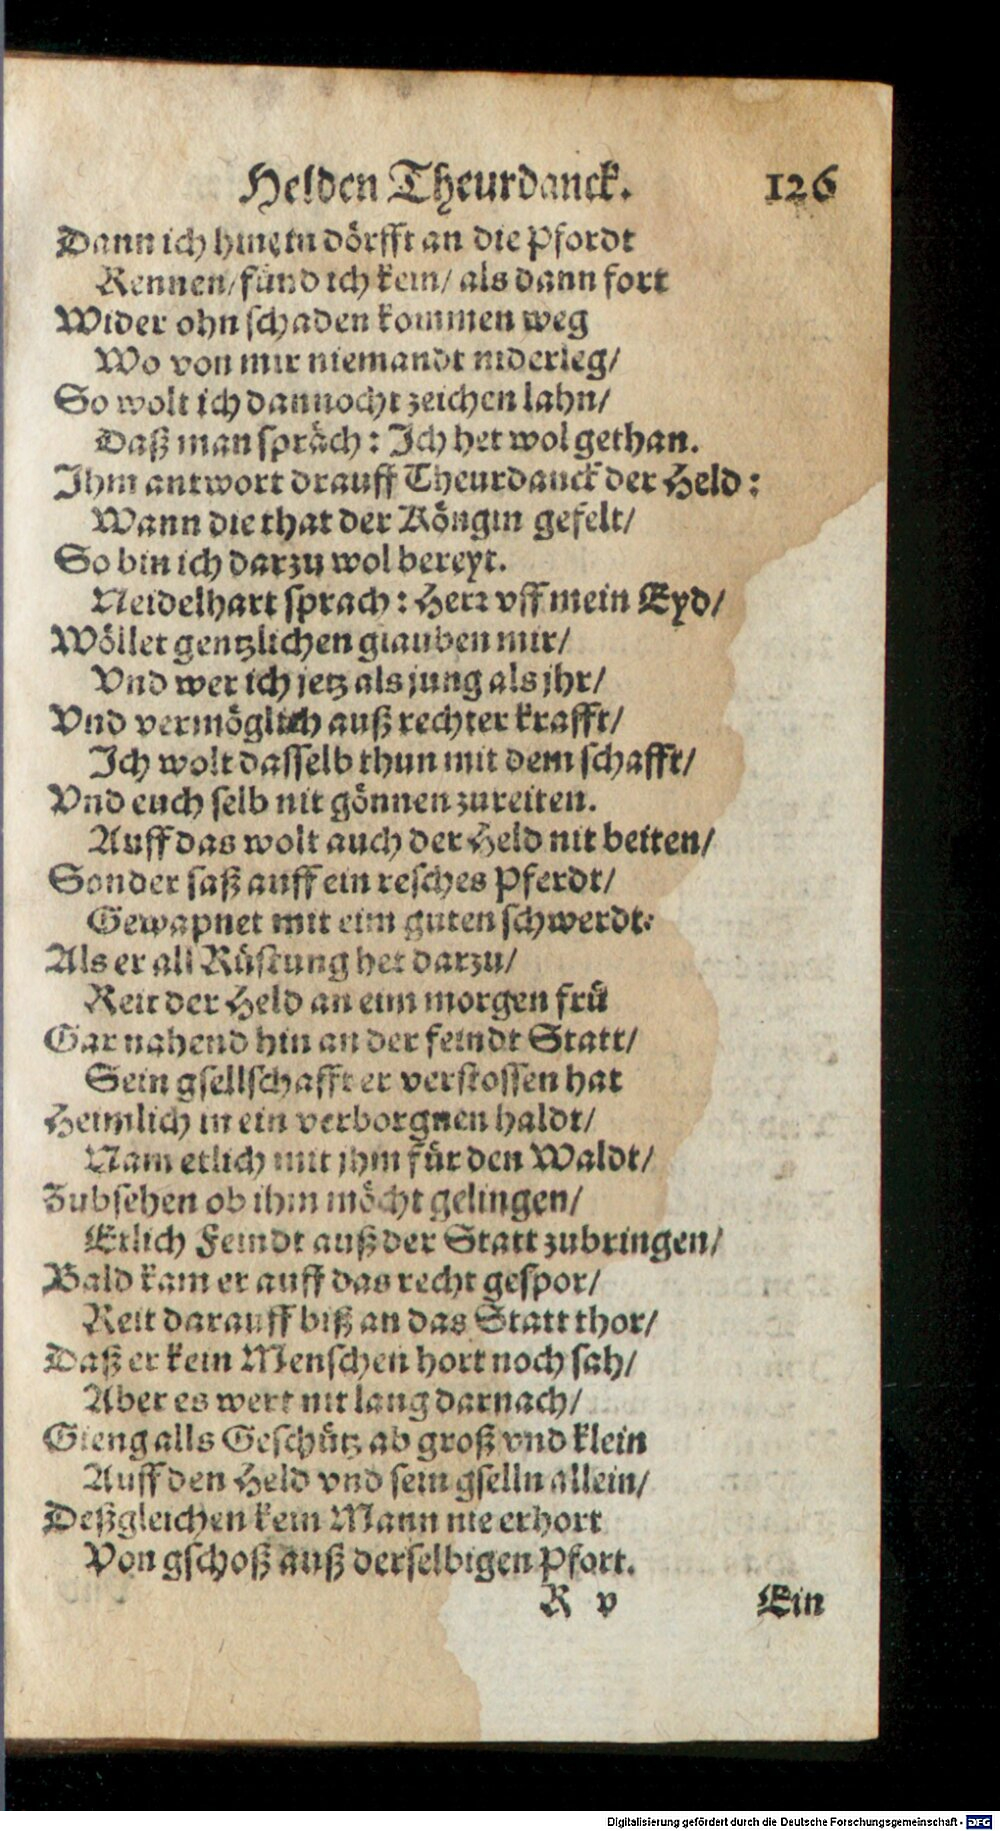 Helden Theurdanck. 126
Dann ich hinein dörfft an die Pfordt
Rennen/ fünd ich kein/ als dann fort
Wider ohn schaden kommen weg
Wo von mir niemandt niderleg/
So wolt ich dannocht zeichen lahn/
Daß man spräch: Ich het wol gethan.
Ihm antwort drauff Theurdanck der Held:
Wann die that der Köngin gefelt/
So bin ich darzu wol bereyt.
Neidelhart sprach: Herr vff mein Eyd/
Wöllet gentzlichen glauben mir/
Vnd wer ich jetz als jung als jhr/
Vnd vermöglich auß rechter krafft/
Ich wolt dasselb thun mit dem schafft/
Vnd euch selb nit gönnen zureiten.
Auff das wolt auch der Held nit beiten/
Sonder saß auff ein resches Pferdt/
Gewapnet mit eim guten schwerdt:
Als er all Rüstung het darzu/
Reit der Held an eim morgen frü
Gar nahend hin an der feindt Statt/
Sein gsellschafft er verstossen hat
Heimlich in ein verborgnen haldt/
Nam etlich mit jhm für den Waldt/
Zubsehen ob ihm möcht gelingen/
Etlich Feindt auß der Statt zubringen/
Bald kam er auff das recht gespor/
Reit darauff biß an das Statt thor/
Daß er kein Menschen hort noch sah/
Aber es wert nit lang darnach/
Gieng alls Geschütz ab groß vnd klein
Auff den Held vnd sein gselln allein/
Deßgleichen kein Mann nie erhort
Von gschoß auß derselbigen Pfort.
R v Ein
Digitalisierung gefördert durch die Deutsche Forschungsgemeinschaft - DFG